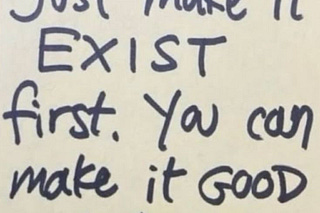 Just make it
EXIST
first. You can
make it GOOD